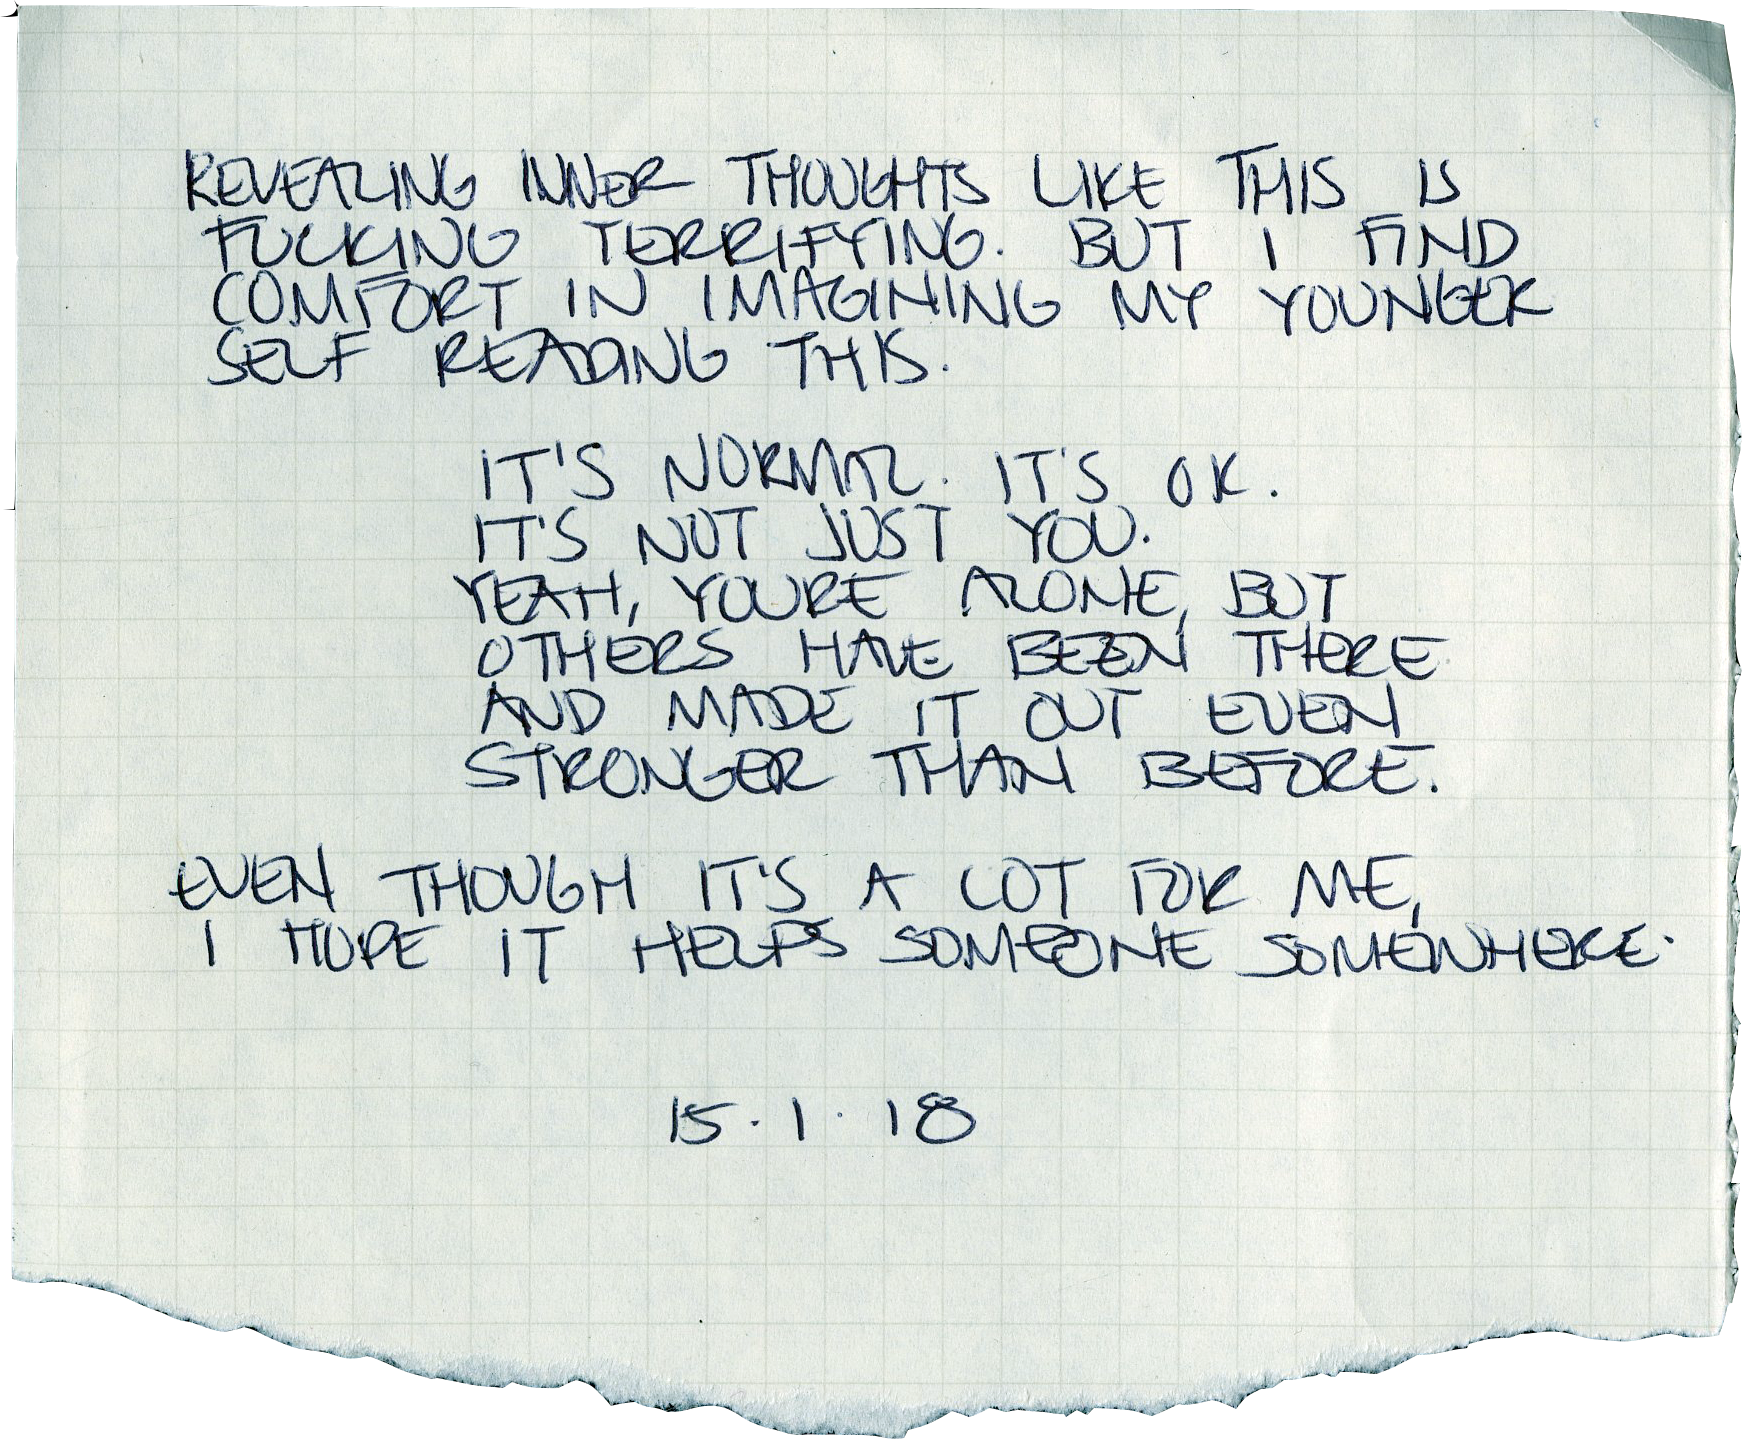 REVEALING INNER THOUGHTS LIKE THIS IS
FUCKING TERRIFYING. BUT I FIND
COMFORT IN IMAGINING MY YOUNGER
SELF READING THIS.
IT'S NORMAL. IT'S OK.
IT'S NOT JUST YOU.
YEAH, YOURE ALONE, BUT
OTHERS HAVE BEEN THERE
AND MADE IT OUT EVEN
STRONGER THAN BEFORE.
EVEN THOUGH IT'S A LOT FOR ME,
I HOPE IT HELPS SOMEONE SOMEWHERE.
15.1.18